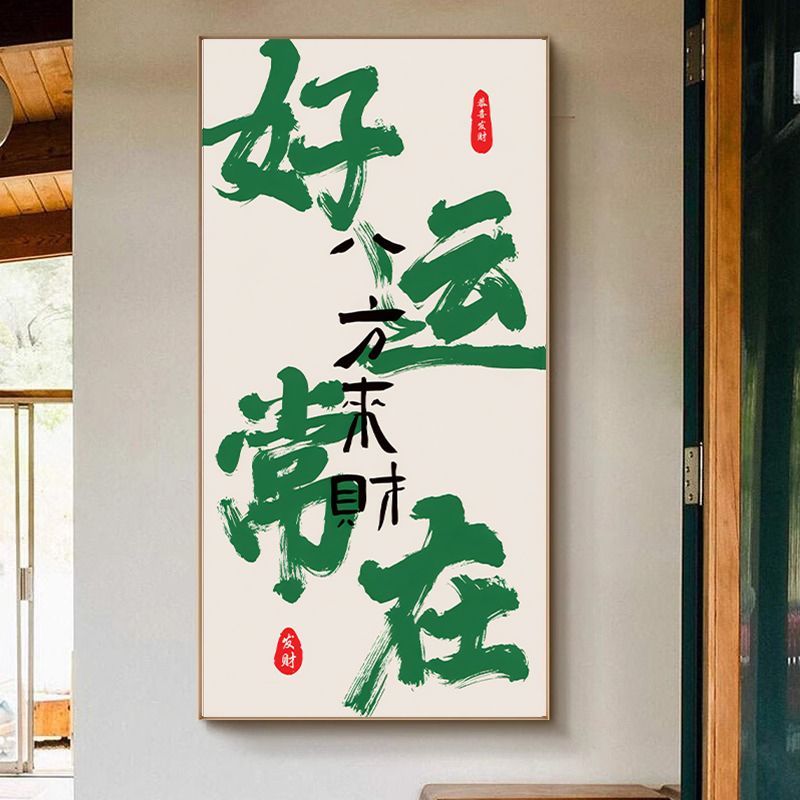 好运常在
八方来財
恭喜发财
发财